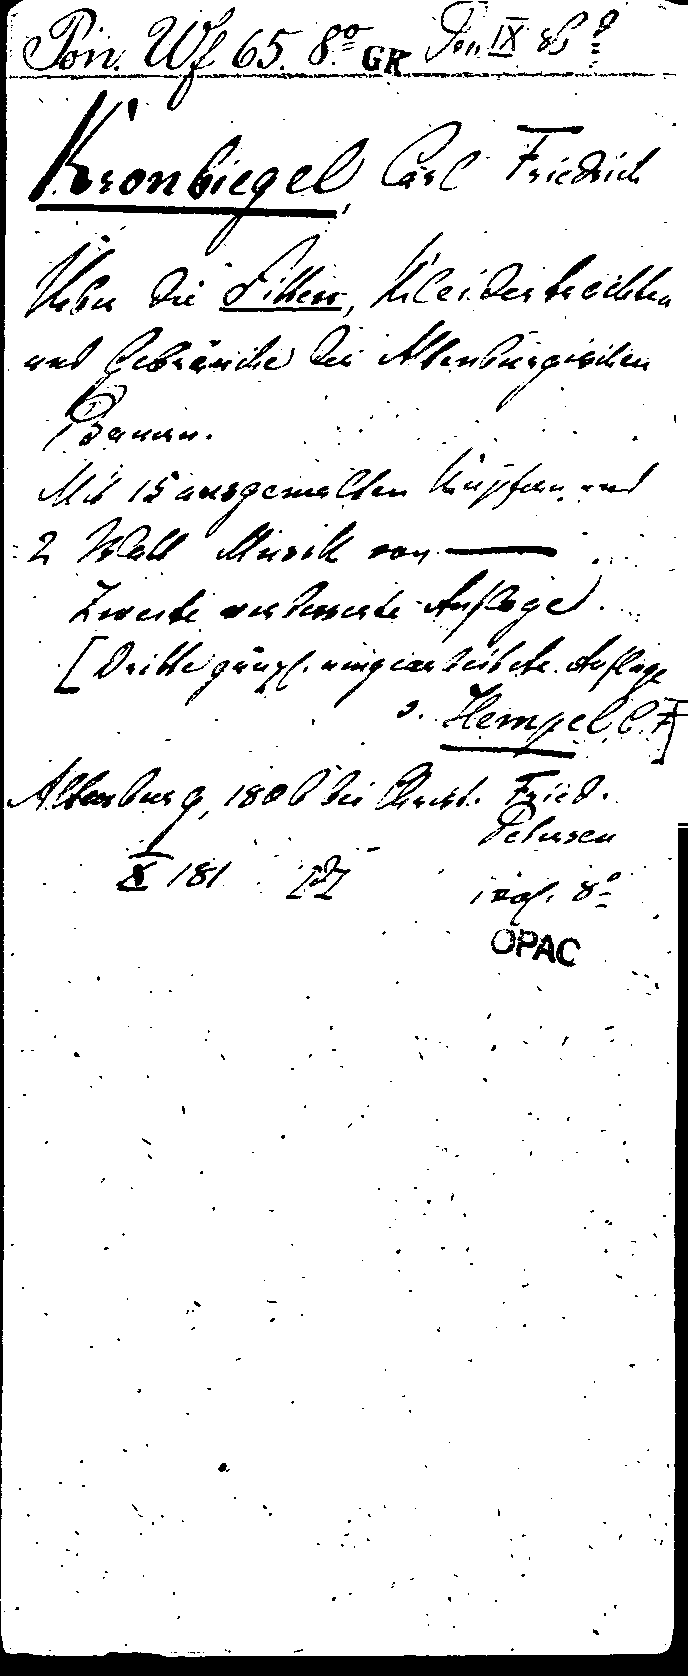 Pon. Wf 65. 8º GK Pon IX 86 8º
Kronbiegel, Carl Friedrich
Ueber die Sitten, Kleidertrachten
und Gebräuche der Altenburgischen
Bauern.
Mit 15 ausgemalten Kupfern und
2 Blatt Musik von ———
Zweite verbesserte Auflage.
[Dritte gänzl. umgearbeitete Auflage
s. Hempel C. F.]
Altenburg, 1806 bei Christ. Fried.
Petersen
X 181
8º
OPAC